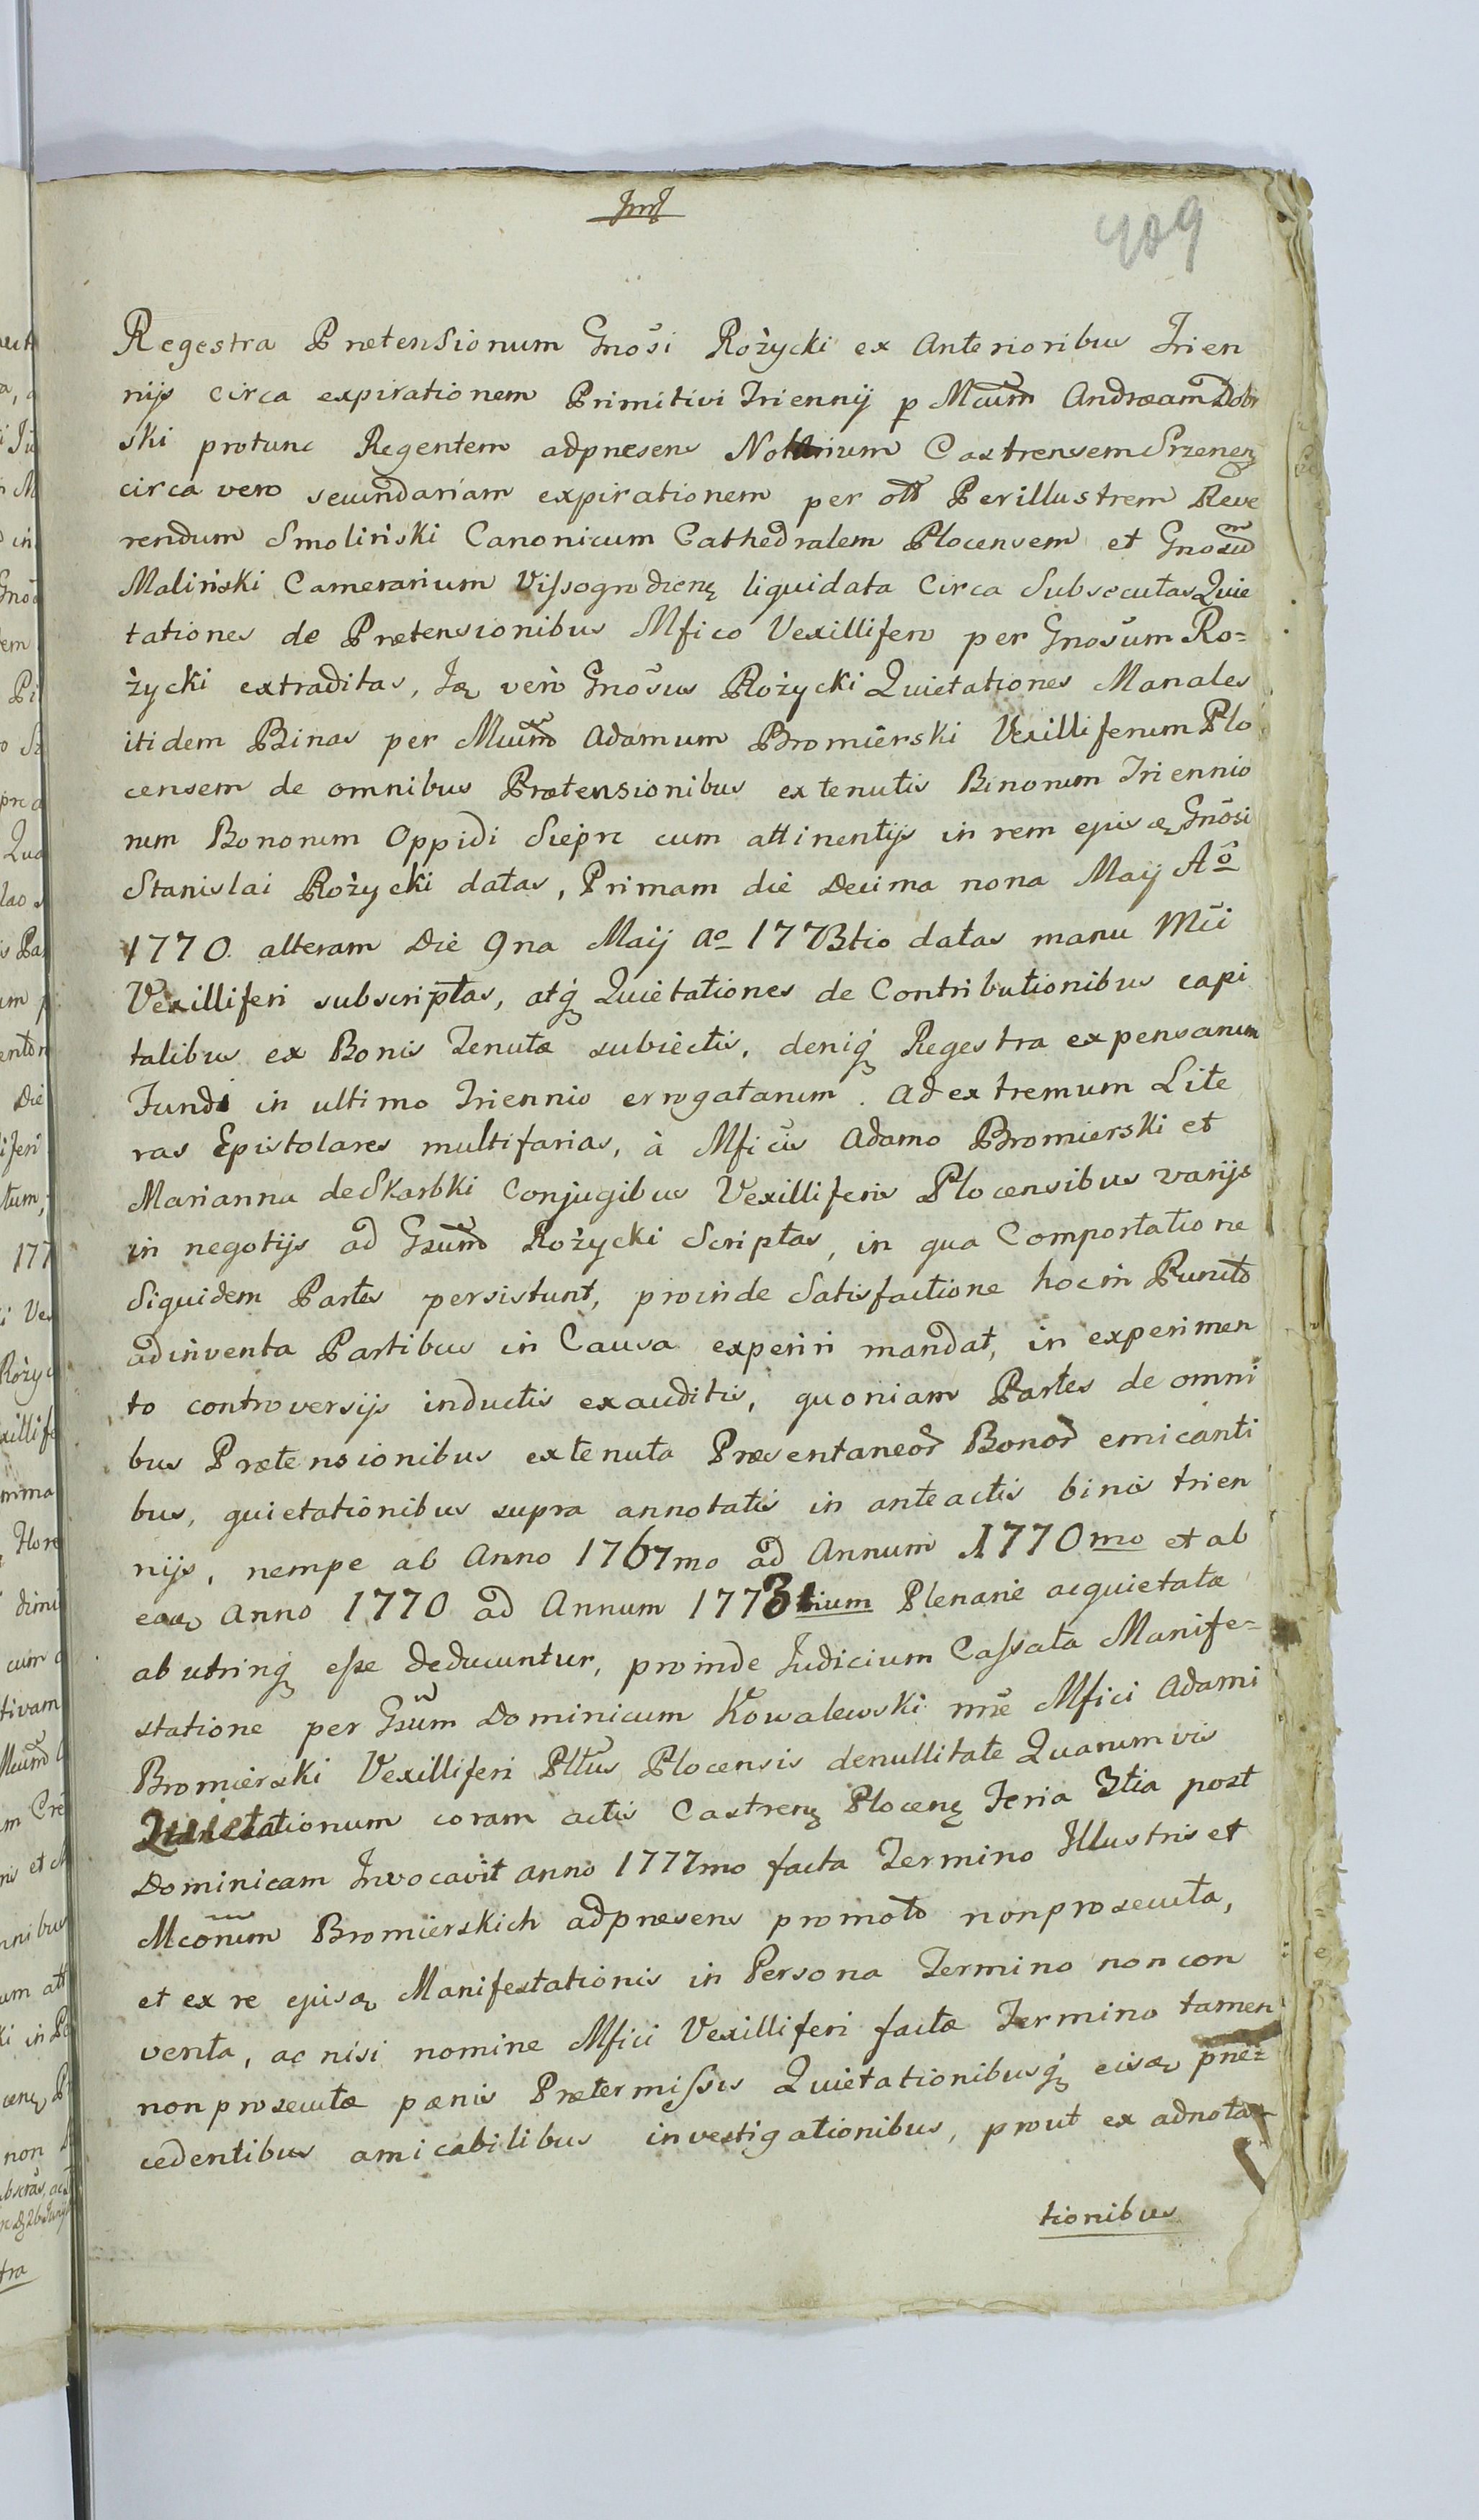 409
Regestra Prætensionum Gnosi Rożycki ex Anterioribus Trien
nijs circa expirationem Primitivi Triennij p Mcum Andræam Dobr
ski protunc Regentem adpræsens Notarium Castrensem Srzenen
circa vero secundariam expirationem per Perillustrem Reve
rendum Smoliński Canonicum Cathedralem Plocensem et Gnosum
Maliński Camerarium Vissogrodien liquidata Circa Subsecutas Quie
tationes de Prætensionibus Mfico Vexillifero per Gnosum Ro=
życki extraditas, vero Gnosus Rożycki Quietationes Manales
itidem Binas per Mcum Adamum Bromierski Vexilliferum Plo
censem de omnibus Prætensionibus ex tenutis Binorum Triennio
rum Bonorum Oppidi Sieprc cum attinentijs in rem ejusq Gnosi
Stanislai Rożycki datas, Primam die Decima nona Maij Aō
1770. alteram Die 9na Maij ao 1773tio datas manu Mci
Vexilliferi subscriptas, atq Quietationes de Contributionibus capi
talibus ex Bonis Tenutæ subiectis, deniq Regestra expensarum
Fundi in ultimo Triennio errogatarum. Ad extremum Lite
ras Epistolares multifarias, à Mficis Adamo Bromierski et
Marianna de Skarbki Conjugibus Vexilliferis Plocensibus varijs
in negotijs ad Gsum Rożycki Scriptas, in qua Comportatione
Siquidem Partes persistunt, proinde Satisfactione hocin Puncto
adinventa Partibus in Causa experiri mandat, in experimen
to controversijs inductis exauditis, quoniam Partes de omni
bus Prætensionibus ex tenuta Præsentaneor Bonor emicanti
bus, quietationibus supra annotatis in anteactis binis trien
nijs, nempe ab Anno 1767mo ad Annum 1770mo et ab
eoq Anno 1770 ad Annum 1773tium Plenarie acquietatæ
ab utrinq esse deducuntur, proinde Judicium Cassata Manife=
statione per Gsum Dominicum Kowalewski nne Mfici Adami
Bromierski Vexilliferi Plttus Plocensis denullitate Quarumvis
Quietationum coram actis Castren Plocen Feria 3tia post
Dominicam Invocavit anno 1777mo facta Termino Illustris et
Mcorum Bromierskich adpræsens promoto nonprosecuta,
et ex re ejusq Manifestationis in Persona Termino non con
venta, ac nisi nomine Mfici Vexilliferi factæ Termino tamen
non prosecutæ pænis Prætermissis Quietationibusq eisq præ=
cedentibus amicabilibus investigationibus, prout ex adnota
tionibus